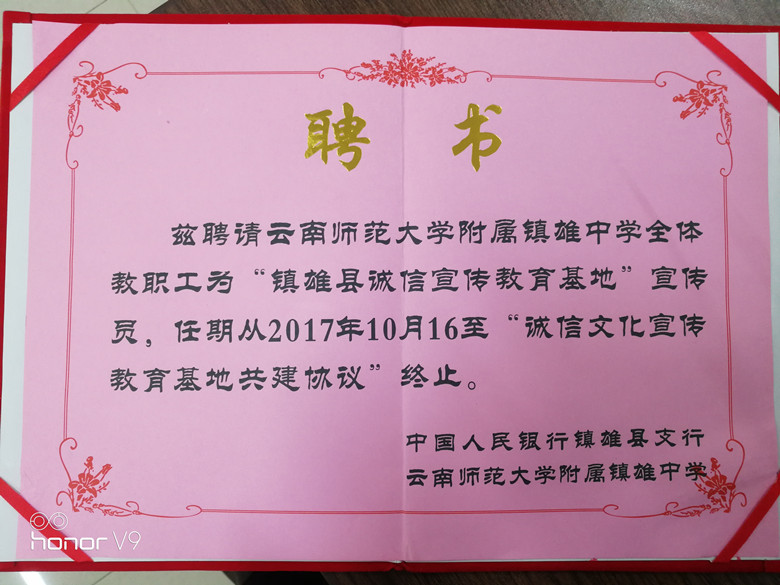 聘 书
兹聘请云南师范大学附属镇雄中学全体
教职工为“镇雄县诚信宣传教育基地”宣传
员，任期从2017年10月16至“诚信文化宣传
教育基地共建协议”终止。
中国人民银行镇雄县支行
云南师范大学附属镇雄中学
honor V9